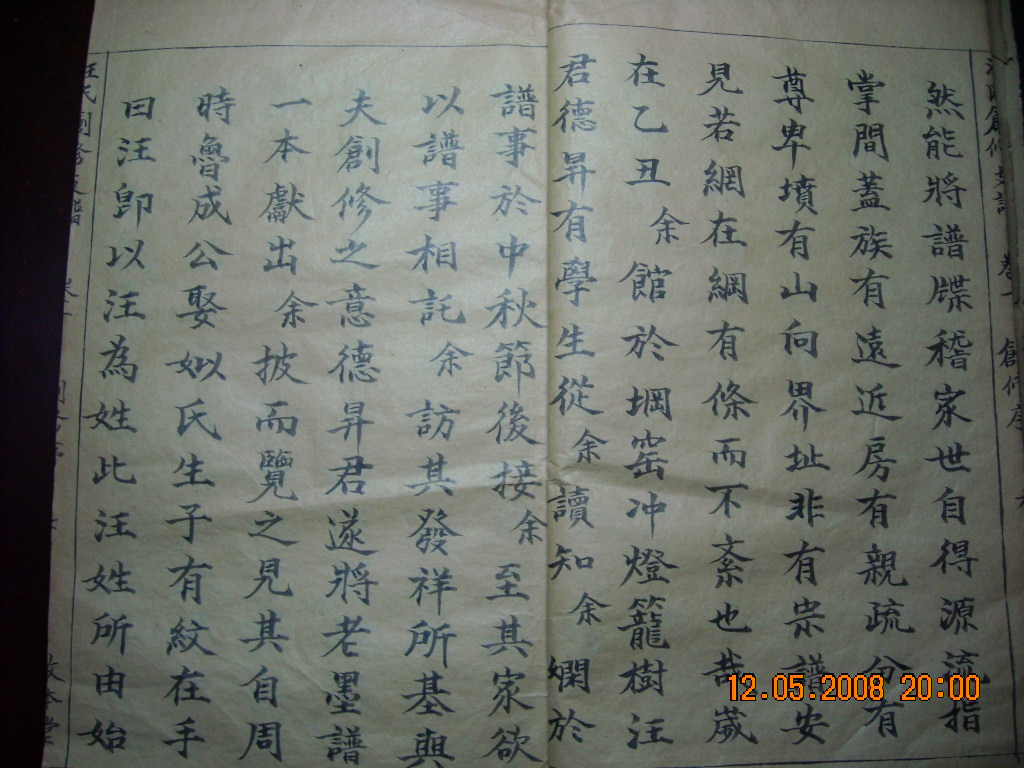 然能將譜牒稽家世自得源流指
掌間蓋族有遠近房有親疏分有
尊卑墳有山向界址非有宗譜安
見若網在綱有條而不紊也哉歲
在乙丑余館於堈窑冲燈籠樹汪
君德昇有學生從余讀知余嫻於
譜事於中秋節後接余至其家欲
以譜事相託余訪其發祥所基與
夫創修之意德昇君遂將老墨譜
一本獻出余披而覽之見其自周
時魯成公娶姒氏生子有紋在手
曰汪卽以汪為姓此汪姓所由始
12.05.2008 20:00